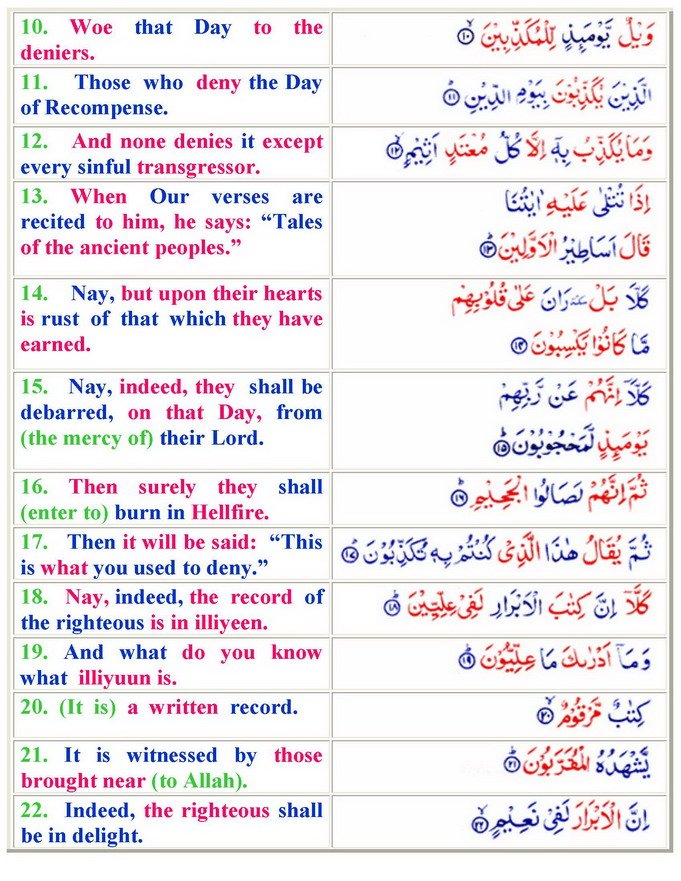 10. Woe that Day to the
deniers.
وَيْلٌ يَّوْمَىِٕذٍ لِّلْمُكَذِّبِيْنَ ۙ﴿۱۰﴾
11. Those who deny the Day
of Recompense.
الَّذِيْنَ يُكَذِّبُوْنَ بِيَوْمِ الدِّيْنِ ؕ﴿۱۱﴾
12. And none denies it except
every sinful transgressor.
وَمَا يُكَذِّبُ بِهٖۤ اِلَّا كُلُّ مُعْتَدٍ اَثِيْمٍ ۙ﴿۱۲﴾
13. When Our verses are
recited to him, he says: “Tales
of the ancient peoples.”
اِذَا تُتْلٰى عَلَيْهِ اٰيٰتُنَا
قَالَ اَسَاطِيْرُ الْاَوَّلِيْنَ ؕ﴿۱۳﴾
14. Nay, but upon their hearts
is rust of that which they have
earned.
كَلَّا بَلْ سكتة رَانَ عَلٰى قُلُوْبِهِمْ
مَّا كَانُوْا يَكْسِبُوْنَ ﴿۱۴﴾
15. Nay, indeed, they shall be
debarred, on that Day, from
(the mercy of) their Lord.
كَلَّاۤ اِنَّهُمْ عَنْ رَّبِّهِمْ
يَوْمَىِٕذٍ لَّمَحْجُوْبُوْنَ ؕ﴿۱۵﴾
16. Then surely they shall
(enter to) burn in Hellfire.
ثُمَّ اِنَّهُمْ لَصَالُوا الْجَحِيْمِ ؕ﴿۱۶﴾
17. Then it will be said: “This
is what you used to deny.”
ثُمَّ يُقَالُ هٰذَا الَّذِىْ كُنْتُمْ بِهٖ تُكَذِّبُوْنَ ؕ﴿۱۷﴾
18. Nay, indeed, the record of
the righteous is in illiyeen.
كَلَّاۤ اِنَّ كِتٰبَ الْاَبْرَارِ لَفِىْ عِلِّيِّيْنَ ؕ﴿۱۸﴾
19. And what do you know
what illiyuun is.
وَمَاۤ اَدْرٰىكَ مَا عِلِّيُّوْنَ ؕ﴿۱۹﴾
20. (It is) a written record.
كِتٰبٌ مَّرْقُوْمٌ ۙ﴿۲۰﴾
21. It is witnessed by those
brought near (to Allah).
يَّشْهَدُهُ الْمُقَرَّبُوْنَ ؕ﴿۲۱﴾
22. Indeed, the righteous shall
be in delight.
اِنَّ الْاَبْرَارَ لَفِىْ نَعِيْمٍ ۙ﴿۲۲﴾